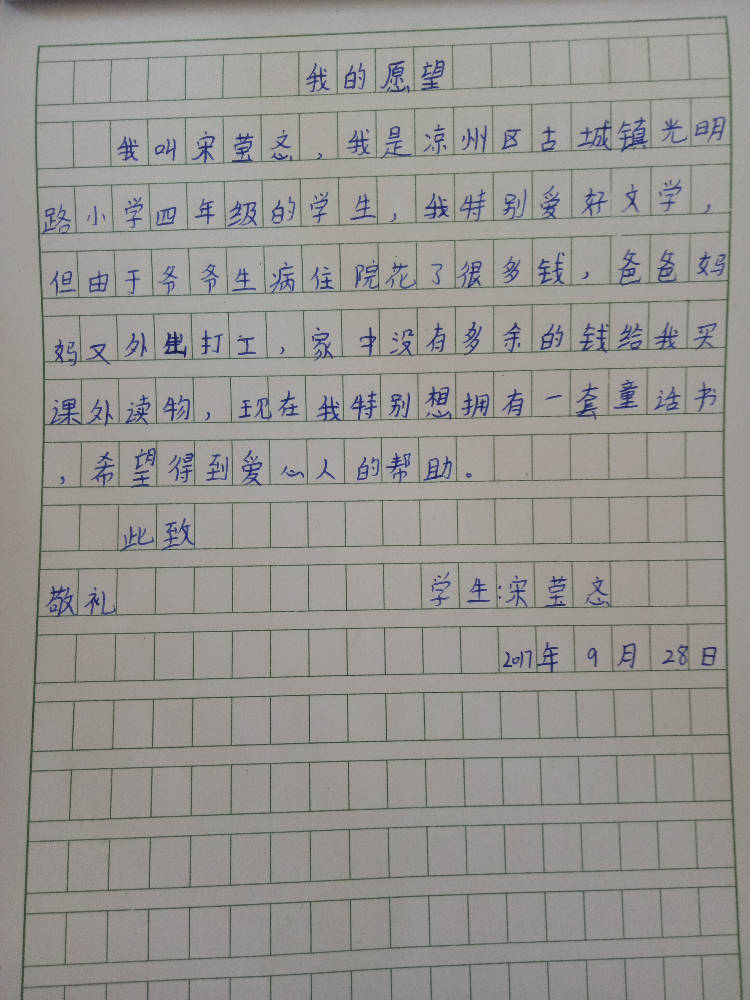 我的愿望
我叫宋莹忞,我是凉州区古城镇光明
路小学四年级的学生,我特别爱好文学,
但由于爷爷生病住院花了很多钱,爸爸妈
妈又外出打工,家中没有多余的钱给我买
课外读物,现在我特别想拥有一套童话书
,希望得到爱心人的帮助。
此致
敬礼 学生:宋莹忞
2017年9月28日